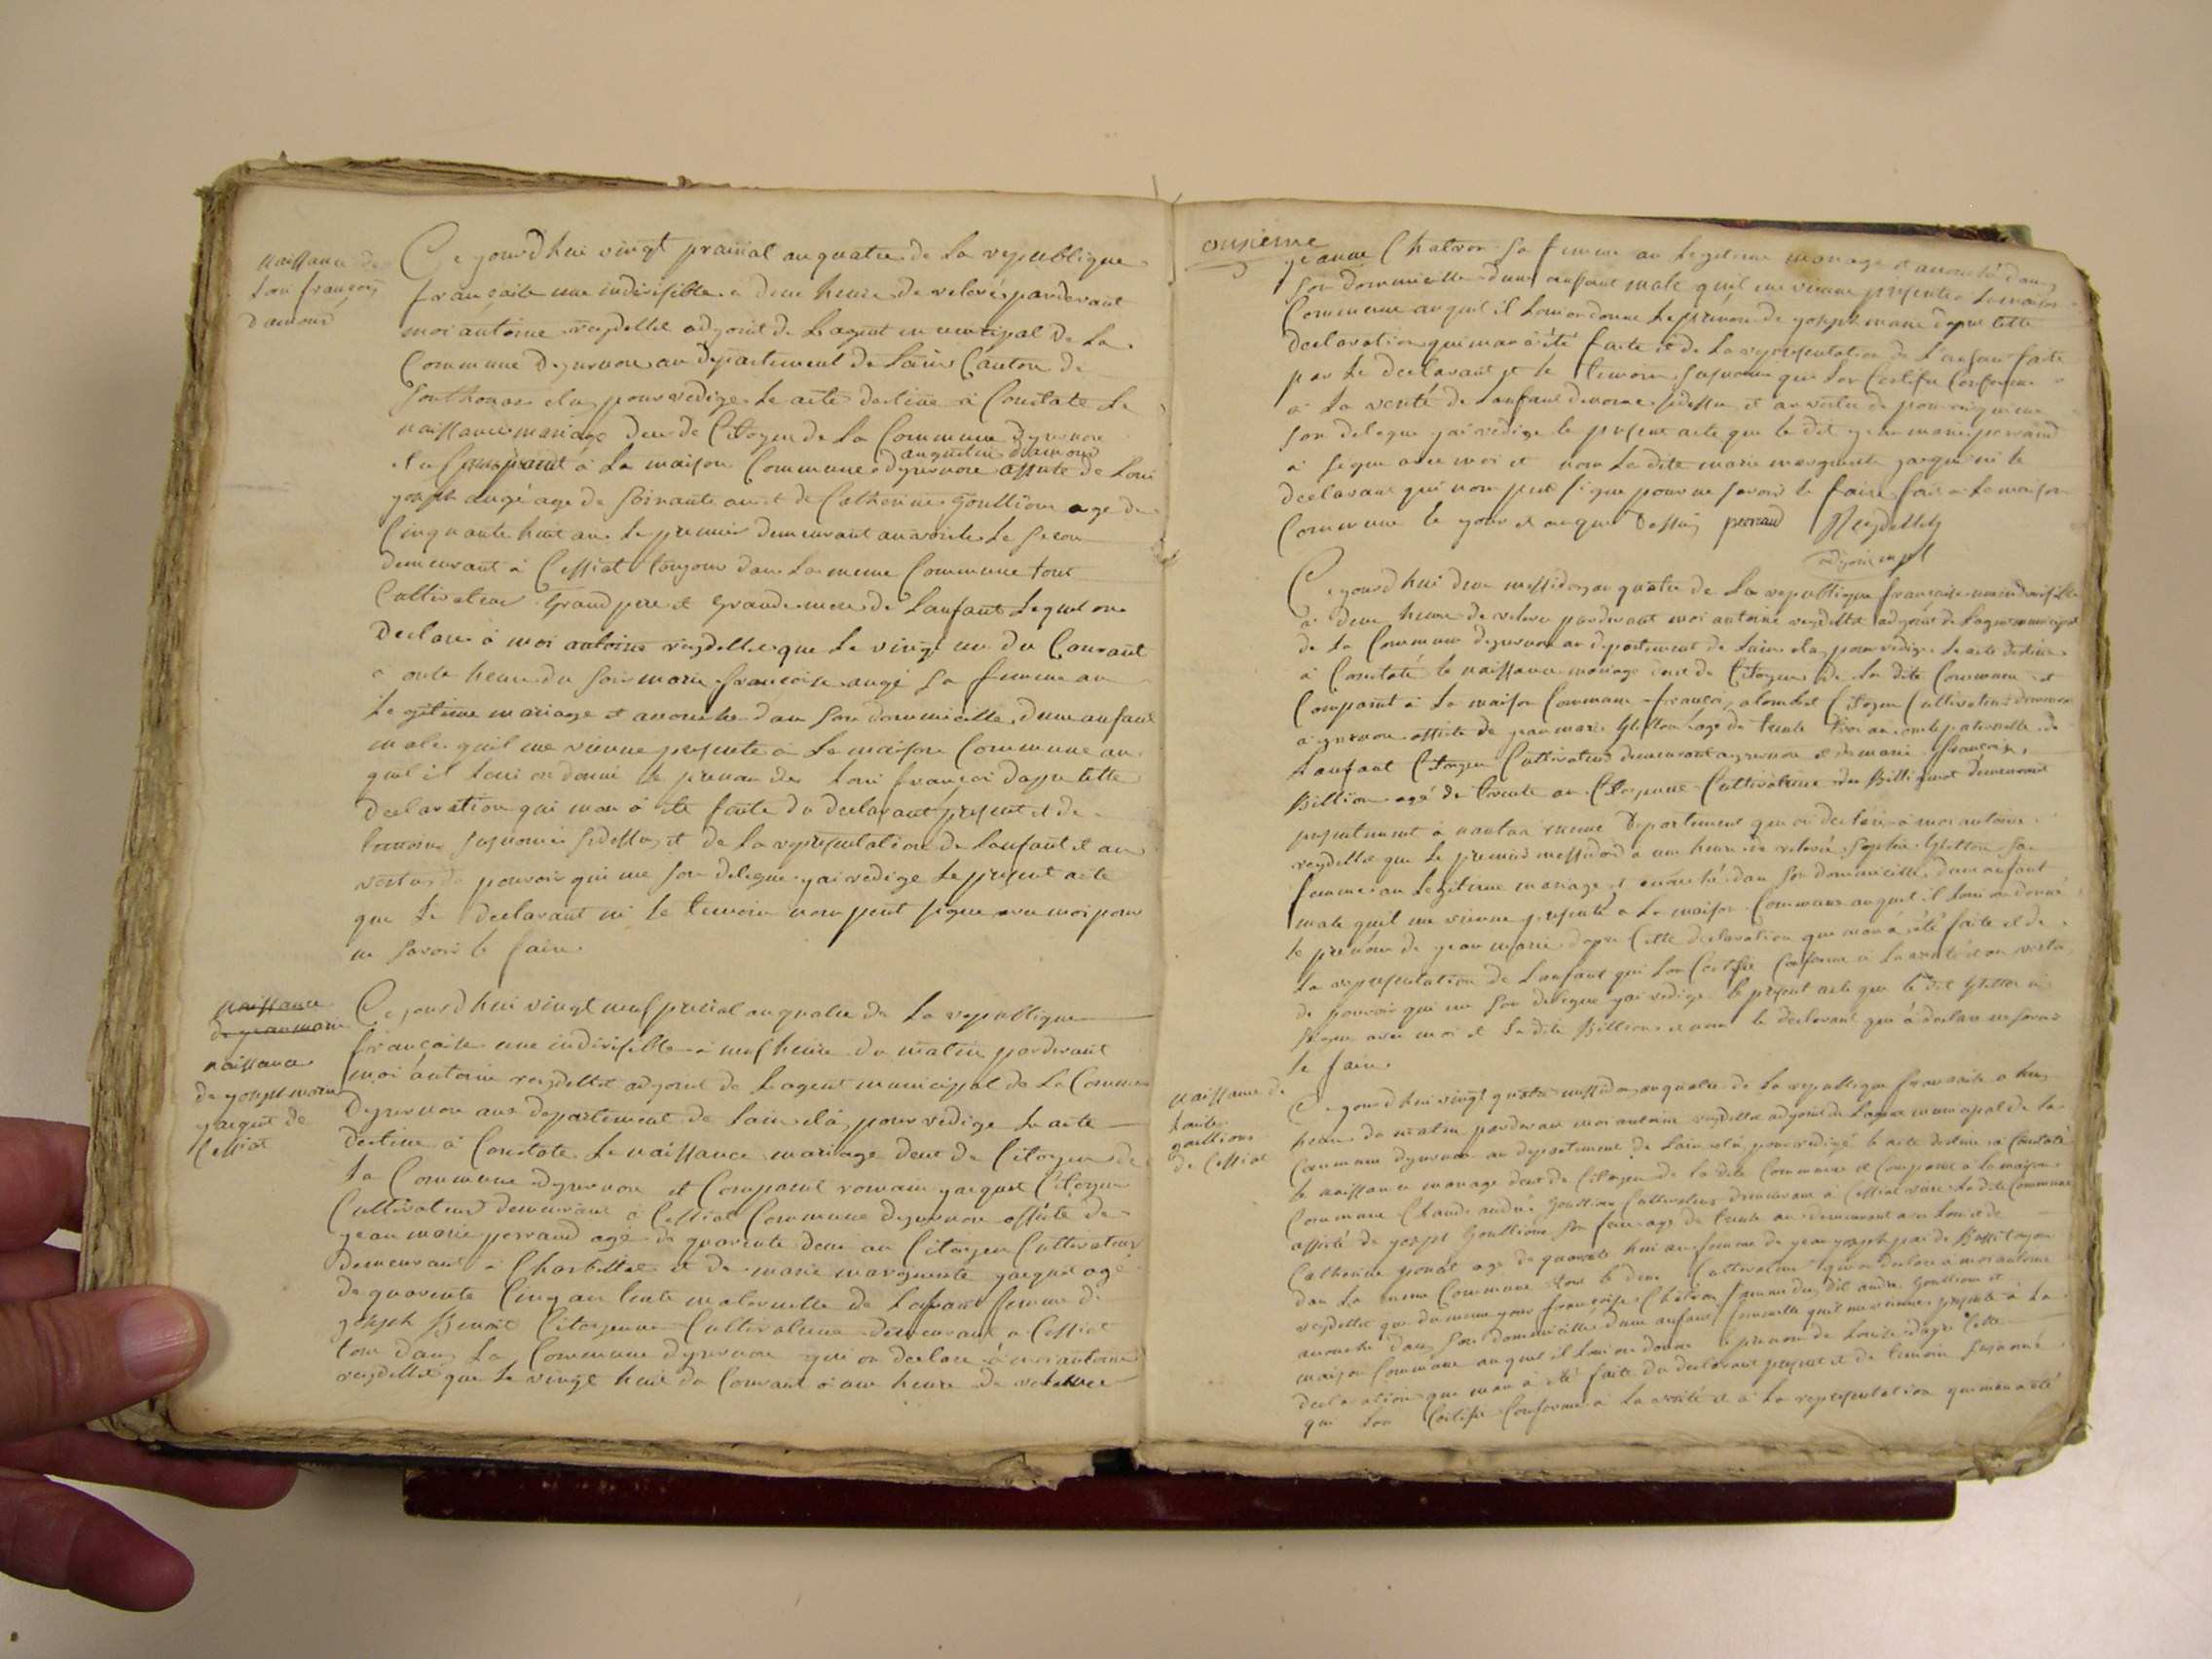 naissance de
Loui françois
d'amour
Ce jourd hui vingt prairial an quatre de la republique
française une indivisible a deue heure de relevé pardevant
moi antoine reydellet adjoint de Lagent municipal de La
Commune dyzernore au departement de Lain Canton de
Sonthonax elu pour redige Le acte destine a Constate Le
naissance mariage deue de Citoyen de La Commune dyzernore
anguelme damour
et a Comparut à La maison Commune dyzernore assiste de Loui
joseph augé age de soixante an et de Catherine Goullion age de
Cinquante huit an Le premier demeurant au voerle Le secon
demeurant a Cessiat toujour dans La meme Commune tout
Cultivateur Grand pere et Grande mere de Lanfant Lequel on
Declare à moi antoine reydellet que Le vingt un du Courant
a onte heure du soir marie francoise augé sa femme an
Legitime mariage et accouche dan son dommicille dune anfant
male quil me vienne presente a La maison Commune au
quel il Loui on donné Le prenon de Loui françoi dapre tette
declaration qui mon a ete faite du declarant present et de
temoins susnomé sidessus et de La representation de Lanfant et an
vertus de pouvoir qui me son delegue jai redige Le present acte
que Le declarant ni Le temoin nom peut signe avec moi pour
ne savoir le faire
naissance
de jean marie
naissance
de joseph marie
jacquet de
Cessiat
Ce jourd hui vingt neuf prerial an quatre de La republique
française une indivisible a neuf heure du matin pardevant
moi antoine reydellet adjoint de Lagent municipal de La Commune
dyzernore aux departement de Lain elu pour redige Le acte
destine a Constate Le naissance mariage deue de Citoyen de
La Commune dyzernore et Comparut romain jacquet Citoyen
Cultivateur demeurant a Cessiat Commune dyzernore assiste de
jean marie perraud age de quarente deux an Citoyen Cultivateur
demeurant a Charbillat et de marie marguerite jacquet age
de quarente Cinq an tente maternelle de Lanfant femme de
joseph Benoit Citoyenne Cultivatrice demeurant a Cessiat
tous dans La Commune dyzernore qui on declare à moi antoine
reydellet que Le vingt huit du Courant a une heure de relevee
onzieme
jeanne Chatron sa femme an Legitime mariage et accouché dan
son dommicille dune anfant male quil me vienne presente a La maison
Commune auquel il Loui on donne Le prenon de joseph marie dapre tette
declaration qui mon a été faite et de La representation de Lanfant faite
par Le declarant et le temoin susnome qui Lon Certifie Conforme
a La verité de Lanfant denomé sidessus et an vertu de pouvoir qui me
son delegue jai redige le present acte que le dit jean marie perraud
a signe avec moi et non La dite marie marguerite jacquet ni le
declarant qui nom peut signe pour ne savoir le faire fait a La maison
Commune le jour et an que dessus perraud Reydellet
adjoint mpl
Ce jourd hui deue messidor an quatre de La republique française une indivisible
a deue heure de releve pardevant moi antoine reydellet adjoint de Lagent municipal
de La Commune dyzernore au departement de Lain elu pour redige Le acte destiné
a Constaté le naissance mariage deue de Citoyen de La dite Commune et
Comparut a La maison Commune françoi alombet Citoyen Cultivateur demeurant
a yzernore assiste de jean marie Gletton age de trente troi an oncle paternelle de
Lanfant Citoyen Cultivateur demeurant a yzernore et de marie françoise
Billion agé de trente an Citoyenne Cultivatrice de Billignat demeurant
presentement a nantua meme departement qui on declare a moi antoine
reydellet que Le premier messidor a une heure de relevée sophie Gletton sa
femme an Legitime mariage et accouché dan son dommicille dune anfant
male quil me vienne presenté a La maison Commune auquel il Loui on donné
le prenom de jean marie dapre Cette declaration qui mon a été faite et de
La representation de Lanfant qui Lon Certifie Conforme a La verité et an vertu
de pouvoir qui me son delegue jai redige le present acte que le dit Gletton a
signe avec moi et La dite Billion et non le declarant qui a declare ne savoir
le faire
naissance de
Louise
goullion
de Cessiat
Ce jourd hui vingt quatre messidor an quatre de La republique francaise a huit
heure du matin pardevan moi antoine reydellet adjoint de Lagent municipal de La
Commune dyzernore au departement de Lain elu pour redigé le acte destine a Constaté
le naissance mariage deue de Citoyen de La dite Commune et Comparut a La maison
Commune Claude andré Goullion Cultivateur demeurant a Cessiat rière La dite Commune
assisté de joseph Goullion son frere age de trente an demeurant avec Loui et de
Catherine ponat age de quarante hui an femme de jean joseph pai de Bussi toujour
dan La meme Commune tous le deue Cultivateur lequel on declare a moi antoine
reydellet que du meme jour françoise Chatron femme du dit andre Goullion et
accouche dans son dommicille dune anfant femmelle quil me vienne presente à La
maison Commune auquel il Loui on donne le prenom de Louise dapre Cette
declaration que mon a été faite du declarant present et de temoin susnomé
qui Lon Certifie Conforme a La verité et a La representation qui mon a eté